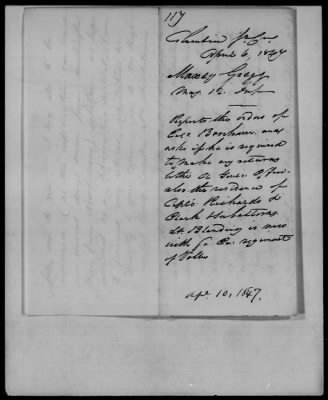 117
April 6, 1847
Maxcy Gregg
Maj. 12. Inf
Reports the orders of
Col. Bonham, and
asks if he is required
to make any returns
to the A. Genl. Office
also the residence of
Capts. Richards &
Clark
Lt Blanding is now
with So. Ca. regiment
of Vols
Ap. 10, 1847.